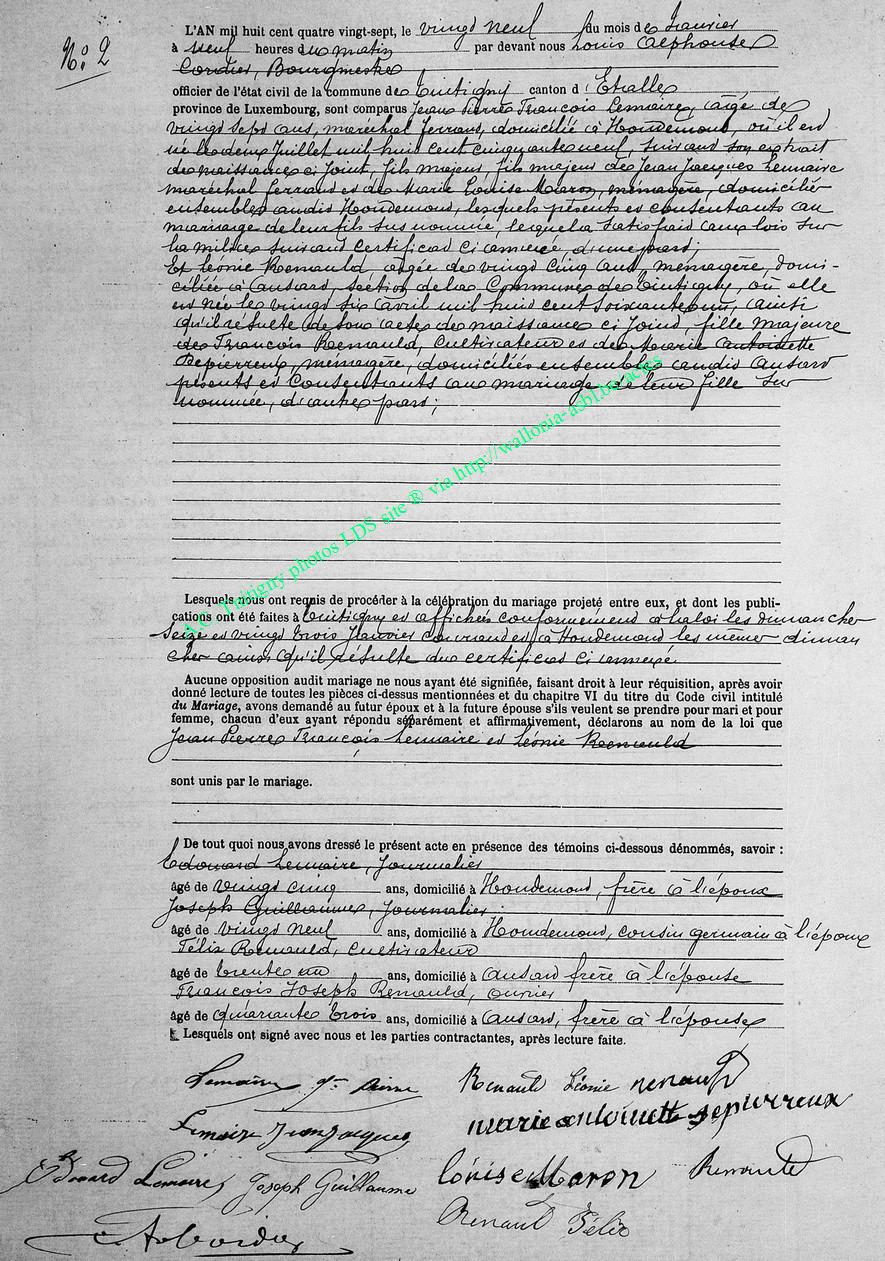 N.o 2
L'AN mil huit cent quatre vingt-sept, le vingt neuf du mois de Janvier
à neuf heures du matin par devant nous Louis Alphonse
Cordier, Bourgmestre
officier de l'état civil de la commune de Tintigny canton d'Etalle
province de Luxembourg, sont comparus Jean Pierre François Lemaire, âgé de
vingt sept ans, maréchal ferrant, domicilié à Houdemont, où il est
né le deux Juillet mil huit cent cinquante neuf, suivant son extrait
de naissance ci joint, fils majeur, fils majeur de Jean Jacques Lemaire
maréchal ferrant et de Marie Louise Maron, ménagère, domiciliés
ensemble audit Houdemont, lesquels présents et consentants au
mariage de leur fils sus nommé, lequel a satisfait aux lois sur
la milice suivant certificat ci annexé, d'une part;
Et Léonie Renauld, âgée de vingt cinq ans, ménagère, domi-
ciliée à Ansart, section de la Commune de Tintigny, où elle
est née le vingt six avril mil huit cent soixante et un, ainsi
qu'il résulte de son acte de naissance ci joint, fille majeure
de François Renauld, Cultivateur et de Marie Antoinette
Depierreux, ménagère, domiciliés ensemble audit Ansart
présents et Consentants au mariage de leur fille sus
nommée, d'autre part;
A.C. Tintigny photos LDS site ® via http://wallonia-asbl.be/actes
Lesquels nous ont requis de procéder à la célébration du mariage projeté entre eux, et dont les publi-
cations ont été faites à Tintigny et affichées conformément à la loi les dimanches
seize et vingt trois Janvier courant et à Houdemont les mêmes diman
ches ainsi qu'il résulte du certificat ci annexé.
Aucune opposition audit mariage ne nous ayant été signifiée, faisant droit à leur réquisition, après avoir
donné lecture de toutes les pièces ci-dessus mentionnées et du chapitre VI du titre du Code civil intitulé
du Mariage, avons demandé au futur époux et à la future épouse s'ils veulent se prendre pour mari et pour
femme, chacun d'eux ayant répondu séparément et affirmativement, déclarons au nom de la loi que
Jean Pierre François Lemaire et Léonie Renauld
sont unis par le mariage.
De tout quoi nous avons dressé le présent acte en présence des témoins ci-dessous dénommés, savoir :
Edouard Lemaire, Journalier
âgé de vingt cinq ans, domicilié à Houdemont, frère à l'époux
Joseph Guillaume, Journalier
âgé de vingt neuf ans, domicilié à Houdemont, cousin germain à l'époux
Félix Renauld, Cultivateur
âgé de trente un ans, domicilié à Ansart frère à l'épouse
François Joseph Renauld, ouvrier
âgé de quarante trois ans, domicilié à Ansart, frère à l'épouse
Lesquels ont signé avec nous et les parties contractantes, après lecture faite.
Lemaire Renauld Léonie renauld
Lemaire Jean Jacques marie antoinette depierreux
Edouard Lemaire Joseph Guillaume Louise Maron Renauld
Renauld Félix